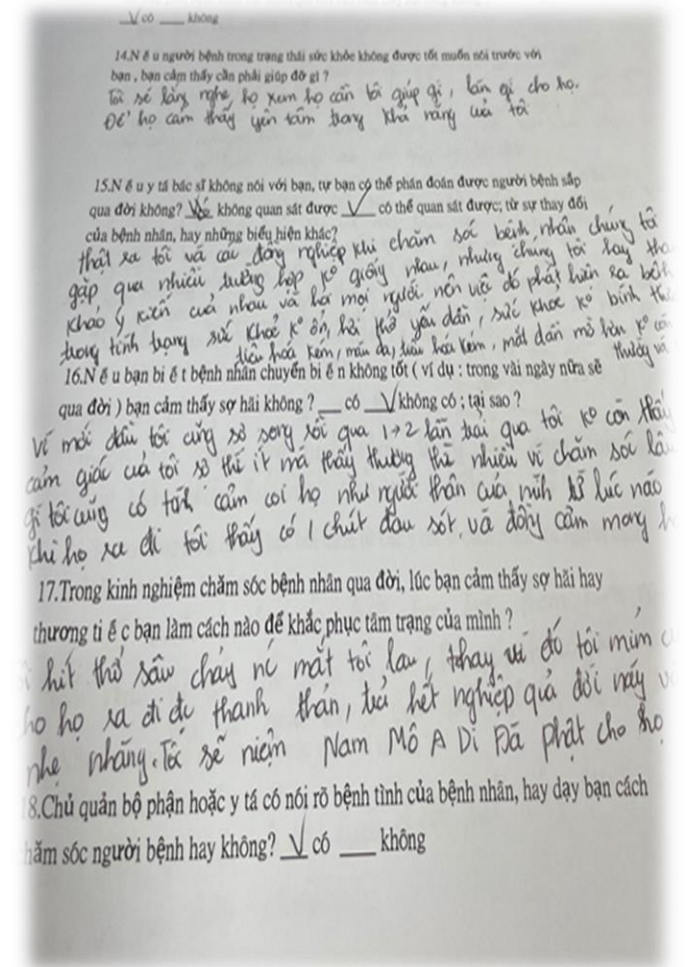 V có ___ không
14.N ế u người bệnh trong trạng thái sức khỏe không được tốt muốn nói trước với
bạn , bạn cảm thấy cần phải giúp đỡ gì ?
Tôi sẽ lắng nghe họ xem họ cần tôi giúp gì, làm gì cho họ.
Để họ cảm thấy yên tâm trong khả năng của tôi
15.N ế u y tá bác sĩ không nói với bạn, tự bạn có thể phán đoán được người bệnh sắp
qua đời không? không quan sát được V có thể quan sát được; từ sự thay đổi
của bệnh nhân, hay những biểu hiện khác?
thật ra tôi và các đồng nghiệp khi chăm sóc bệnh nhân chúng tôi
gặp qua nhiều trường hợp k° giống nhau, nhưng chúng tôi hay tha
khảo ý kiến của nhau và hỏi mọi người nên việc đó phát hiện ra bệnh
trong tình trạng sức khoẻ k° ổn, hơi thở yếu dần, sức khoẻ k° bình thư
tiêu hoá kém, màu da, tiêu hoá kém, mắt dần mờ
16.N ế u bạn bi ế t bệnh nhân chuyển bi ế n không tốt ( ví dụ : trong vài ngày nữa sẽ
qua đời ) bạn cảm thấy sợ hãi không ? ___ có V không có ; tại sao ?
Vì mới đầu tôi cũng sợ song rồi qua 1→2 lần trải qua tôi k° còn thấy
cảm giác của tôi sợ thì ít mà thấy thương thì nhiều vì chăm sóc lâu
gì tôi cũng có tình cảm coi họ như người thân của mình từ lúc nào
khi họ ra đi tôi thấy có 1 chút đau sót, và đồng cảm mong
17.Trong kinh nghiệm chăm sóc bệnh nhân qua đời, lúc bạn cảm thấy sợ hãi hay
thương ti ế c bạn làm cách nào để khắc phục tâm trạng của mình ?
hít thở sâu chảy nước mắt tôi lau, thay vì đó tôi mỉm c
ho họ ra đi đc thanh thản, trả hết nghiệp quả đời này v
nhẹ nhàng. Tôi sẽ niệm Nam Mô A Di Đà phật cho họ
18.Chủ quản bộ phận hoặc y tá có nói rõ bệnh tình của bệnh nhân, hay dạy bạn cách
chăm sóc người bệnh hay không? V có ___ không